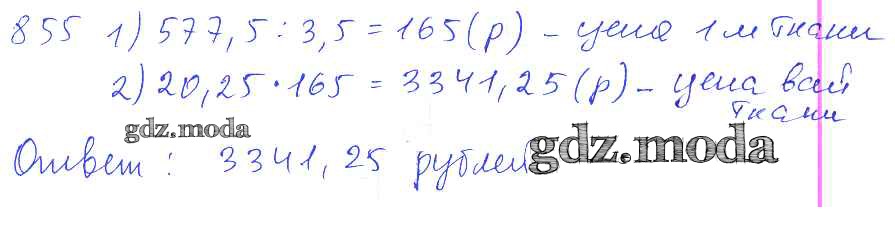 855 1) 577,5 : 3,5 = 165 (р) - цена 1 м ткани
2) 20,25 · 165 = 3341,25 (р) - цена всей
ткани
gdz.moda
Ответ : 3341,25 рублей
gdz.moda